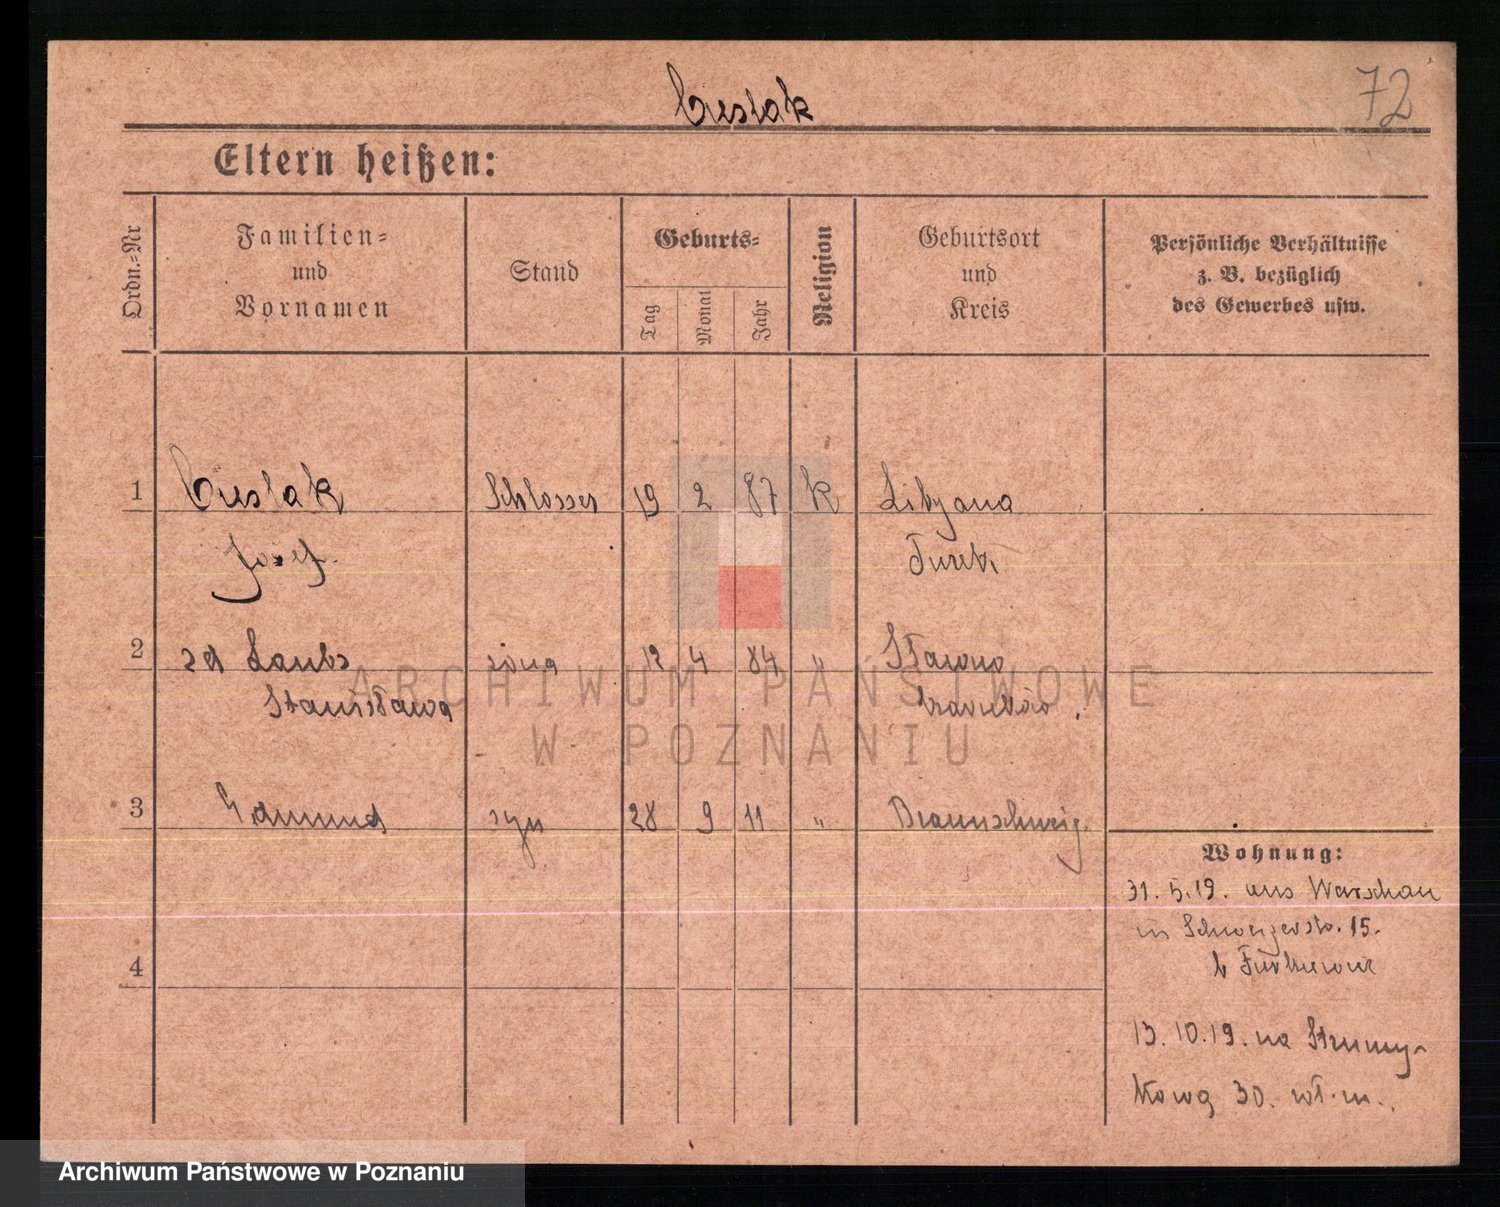 Cieślak
72
Eltern heißen:
Ordn.-Nr
Familien-
und
Vornamen
Stand
Geburts-
Tag
Monat
Jahr
Religion
Geburtsort
und
Kreis
Persönliche Verhältnisse
z. B. bezüglich
des Gewerbes usw.
1 Cieslak Schlosser 19 2 87 k
Josef
Turek
2 zd żona 12 4 84 "
Stanisława
3 Edmund syn 28 9 11 " Braunschweig
4
Wohnung:
31. 5. 19. aus Warschau
in 15.
b
13. 10. 19. na Strumy-
kową 30. wł. m.
ARCHIWUM PAŃSTWOWE
W POZNANIU
Archiwum Państwowe w Poznaniu